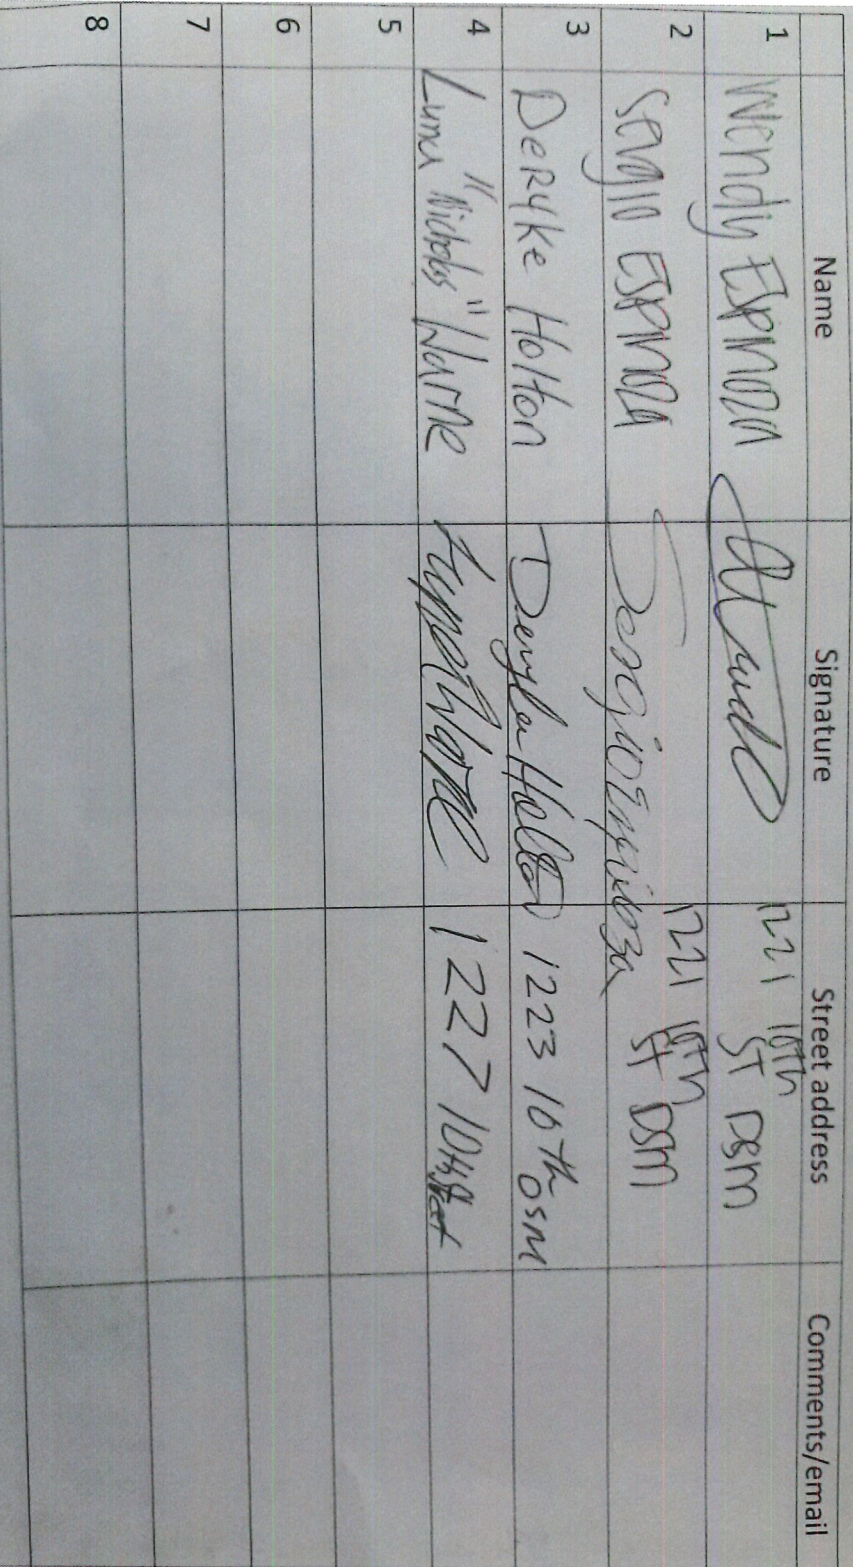 Name Signature Street address Comments/email
1 Wendy ESPINOZA 1221 10th ST DSM
2 Sergio ESPINOZA Sergio Espinoza 1221 10th ST DSM
3 DeRyke Holton Deryke Holton 1223 10th DSM
4 "Nicholas" Warne 1227 10th Street
5
6
7
8